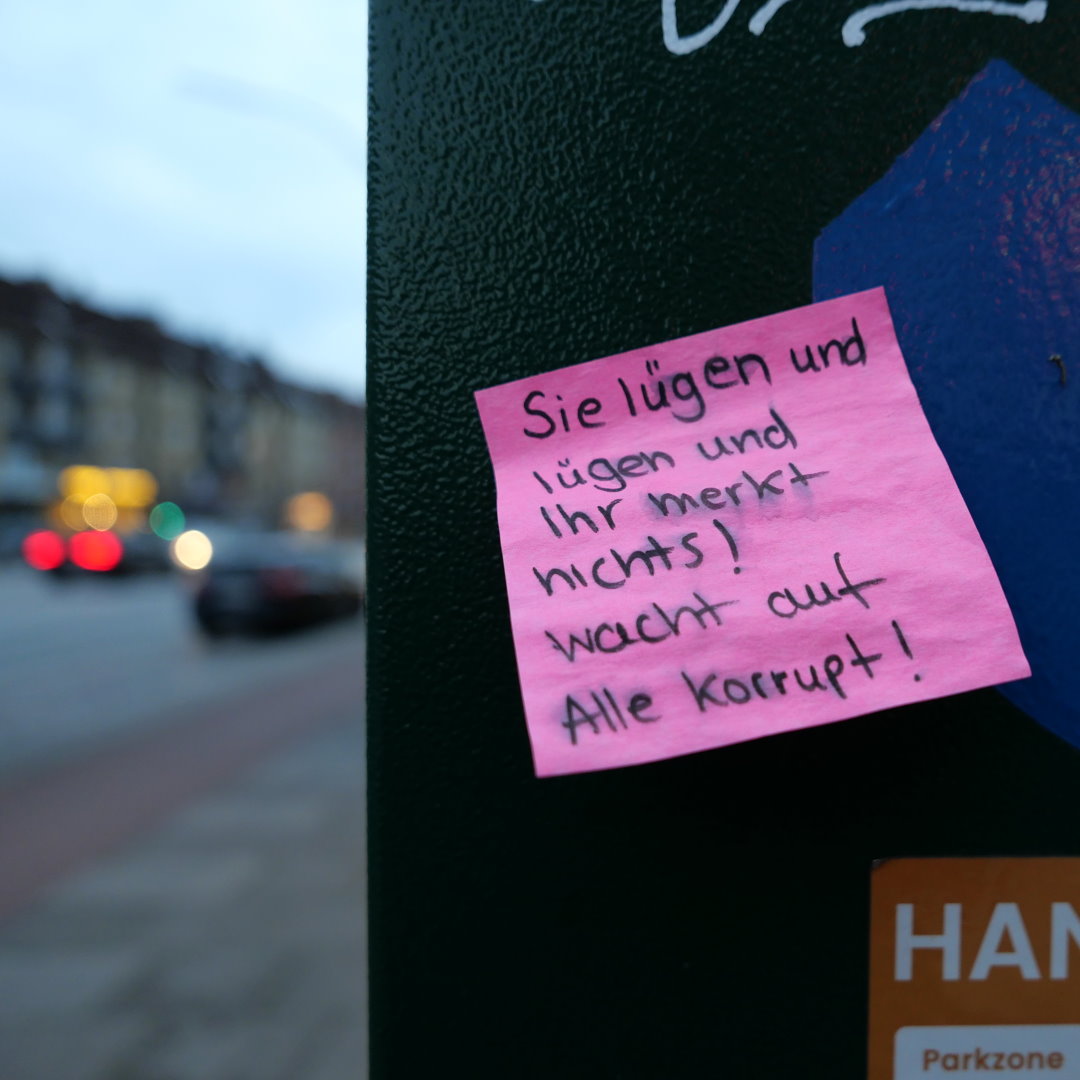 Sie lügen und
lügen und
Ihr merkt
nichts!
wacht auf
Alle korrupt!
HAN
Parkzone